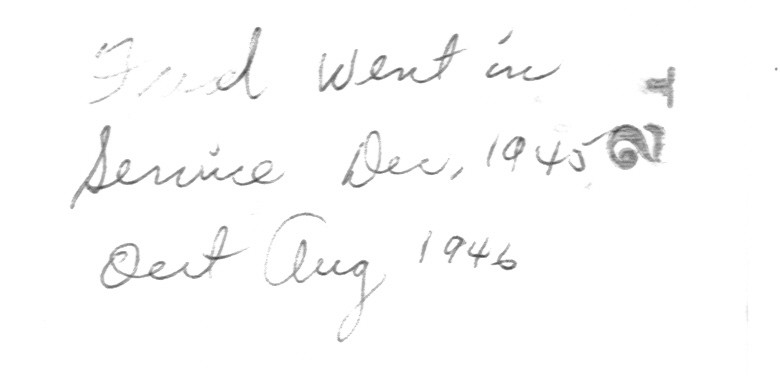 Fred went in
Service Dec, 1945
Out Aug 1946
21